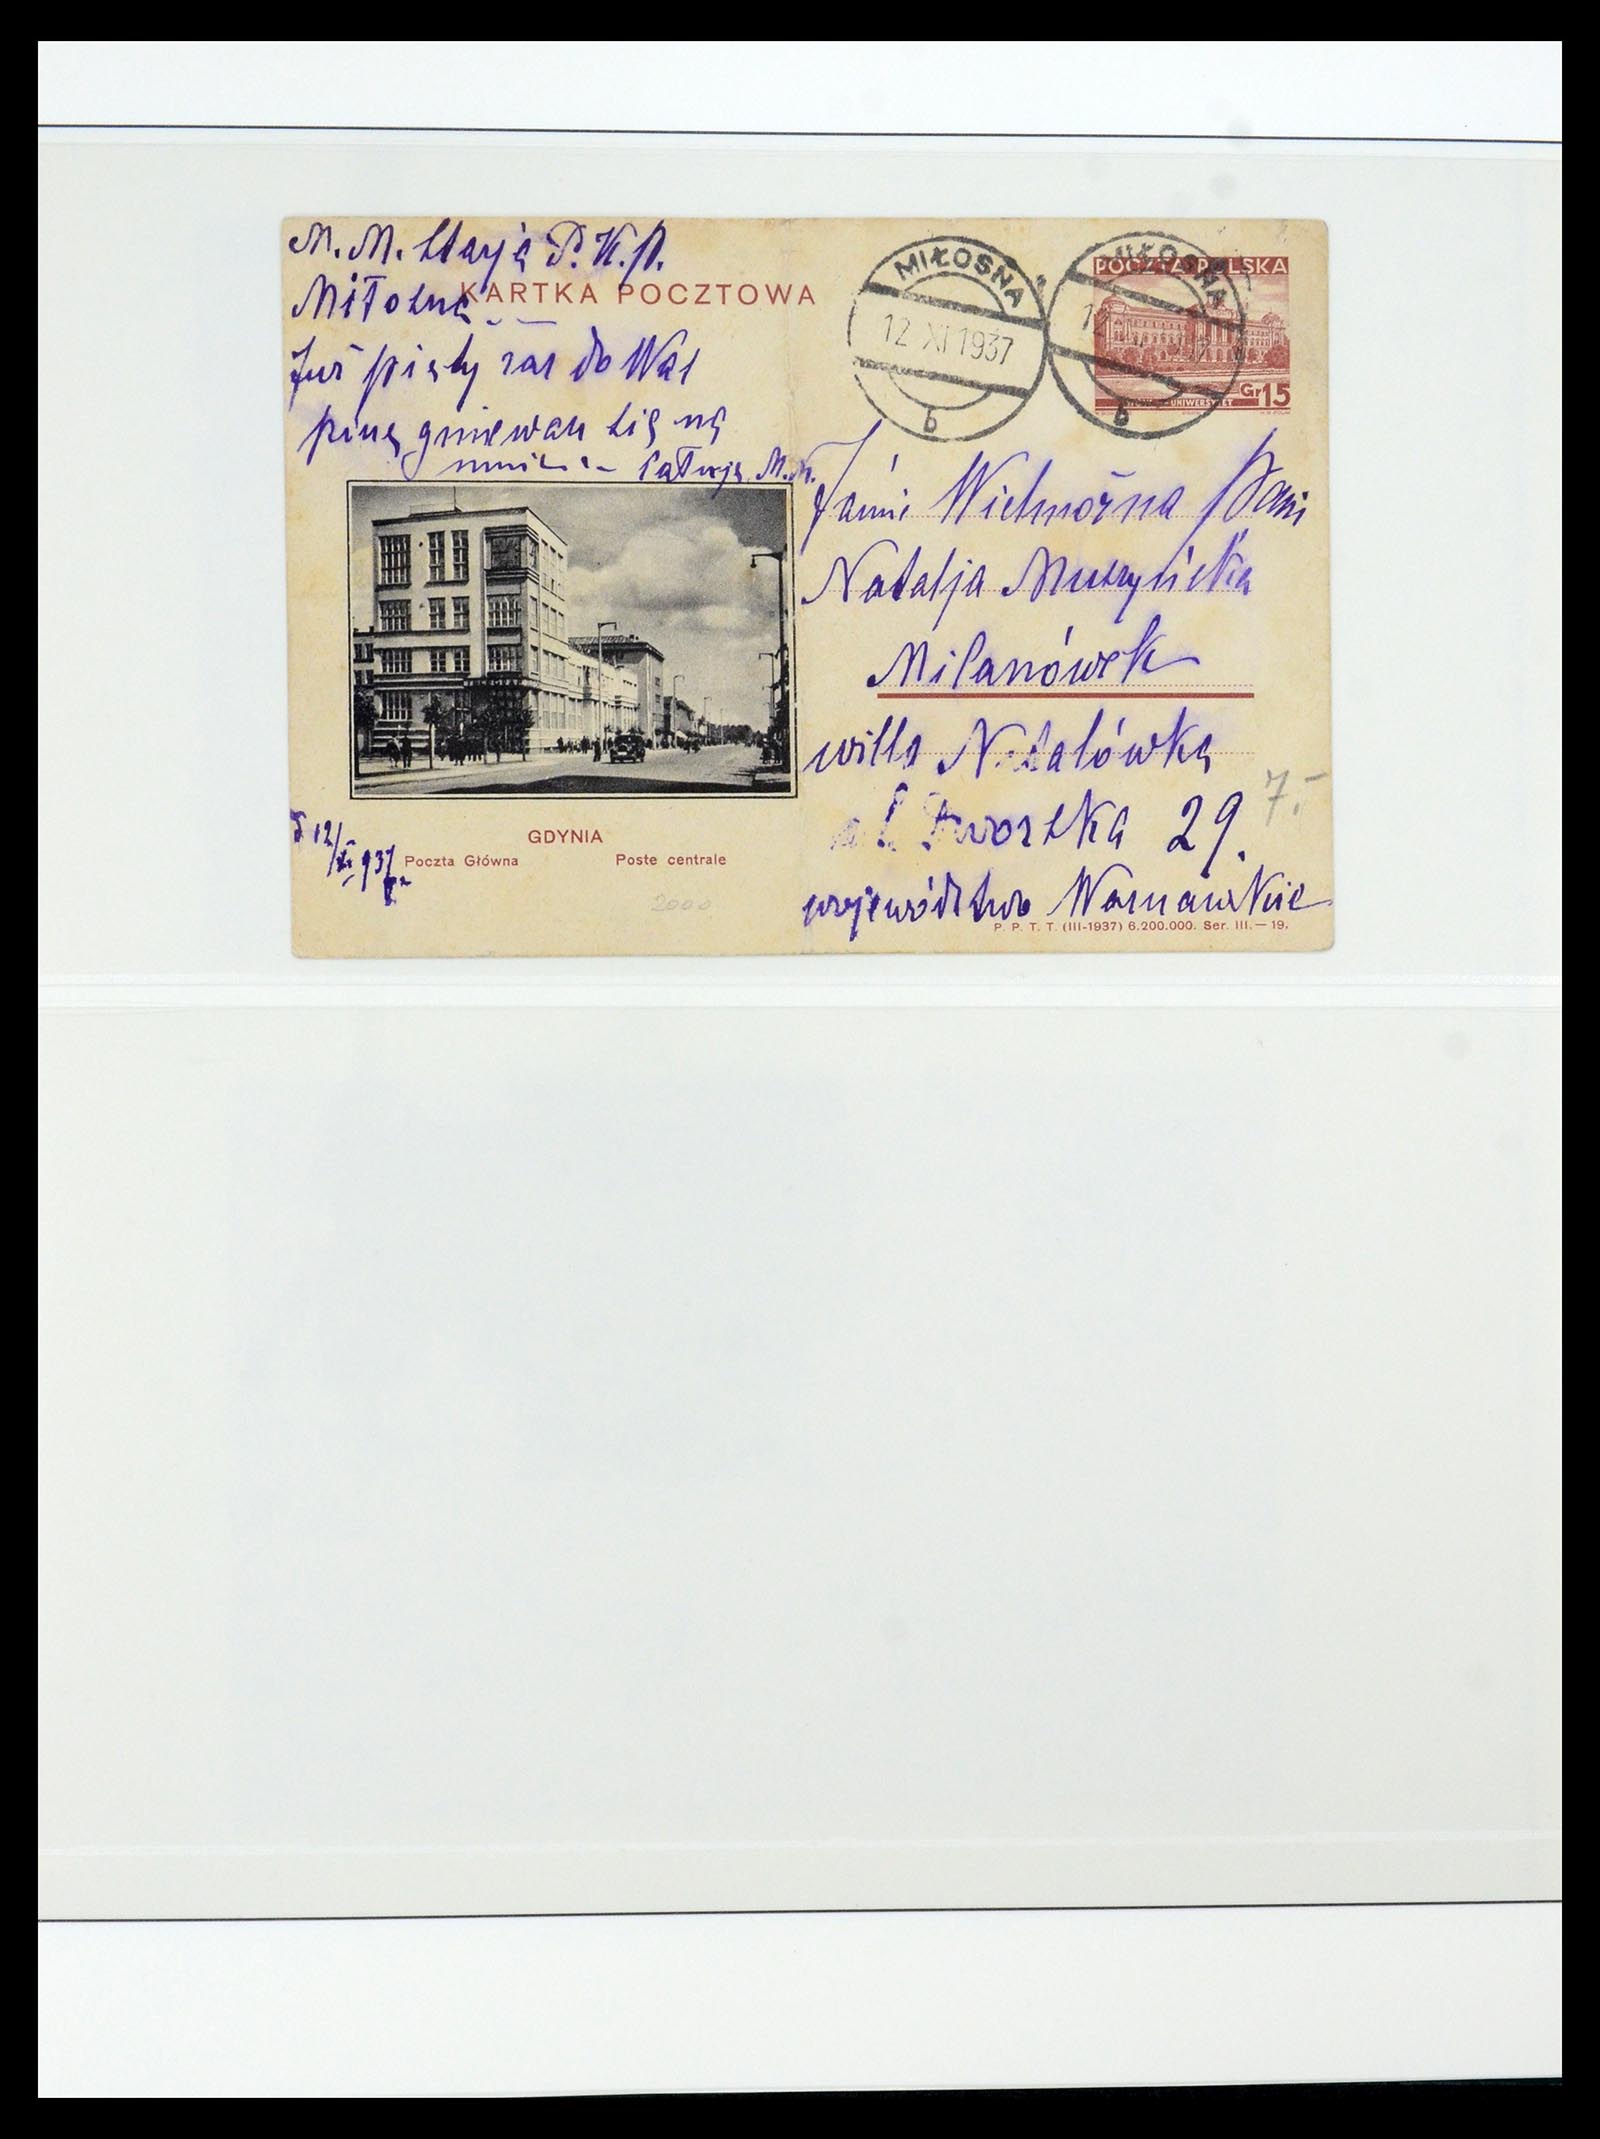 M. M. Stacja P. K. P.
Miłosna
KARTKA POCZTOWA
Już piąty raz do Was
piszę gniewacie się na
M. M.
MIŁOSNA
12 XI 1937
b
MIŁOSNA
12
b
POCZTA POLSKA
UNIWERSYTET
Gr 15
Jaśnie Wielmożna Pani
Natalja Muszyńska
Milanówek
willa Natalówka
ul. Dworska 29.
województwo Warszawskie
7.-
12/XI 937 r.
GDYNIA
Poczta Główna Poste centrale
2000
P. P. T. T. (III-1937) 6.200.000. Ser. III.—19.